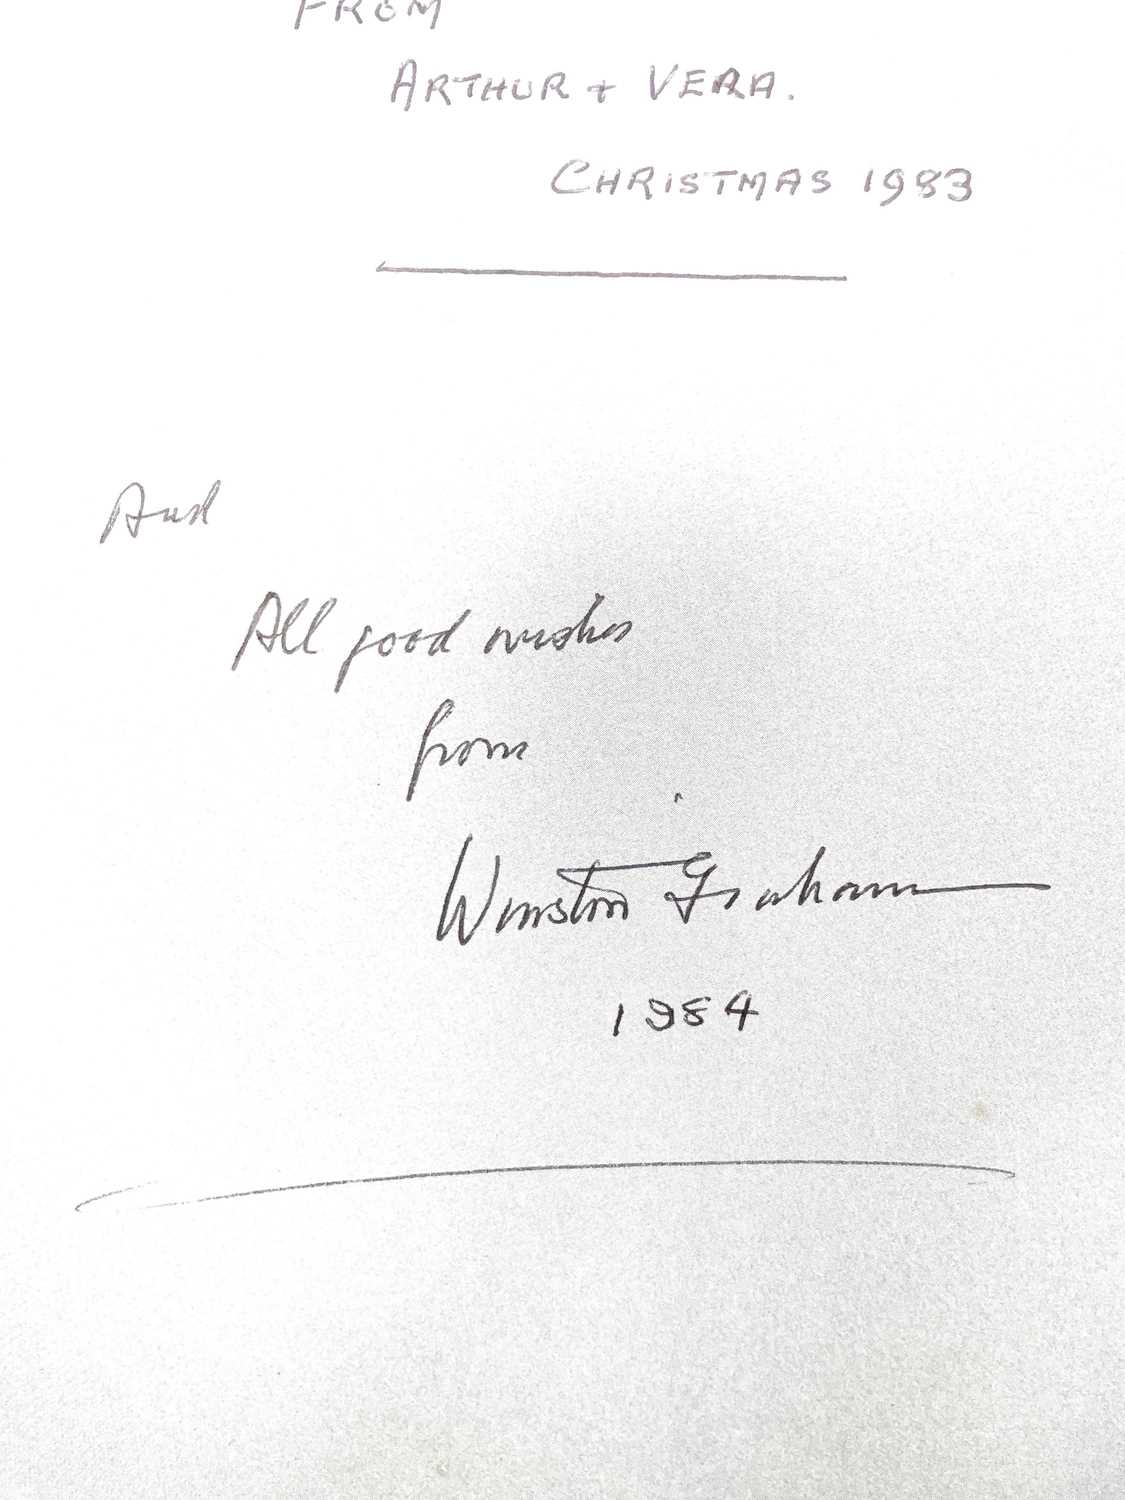 FROM
ARTHUR + VERA.
CHRISTMAS 1983
And
All good wishes
from
Winston Graham
1984